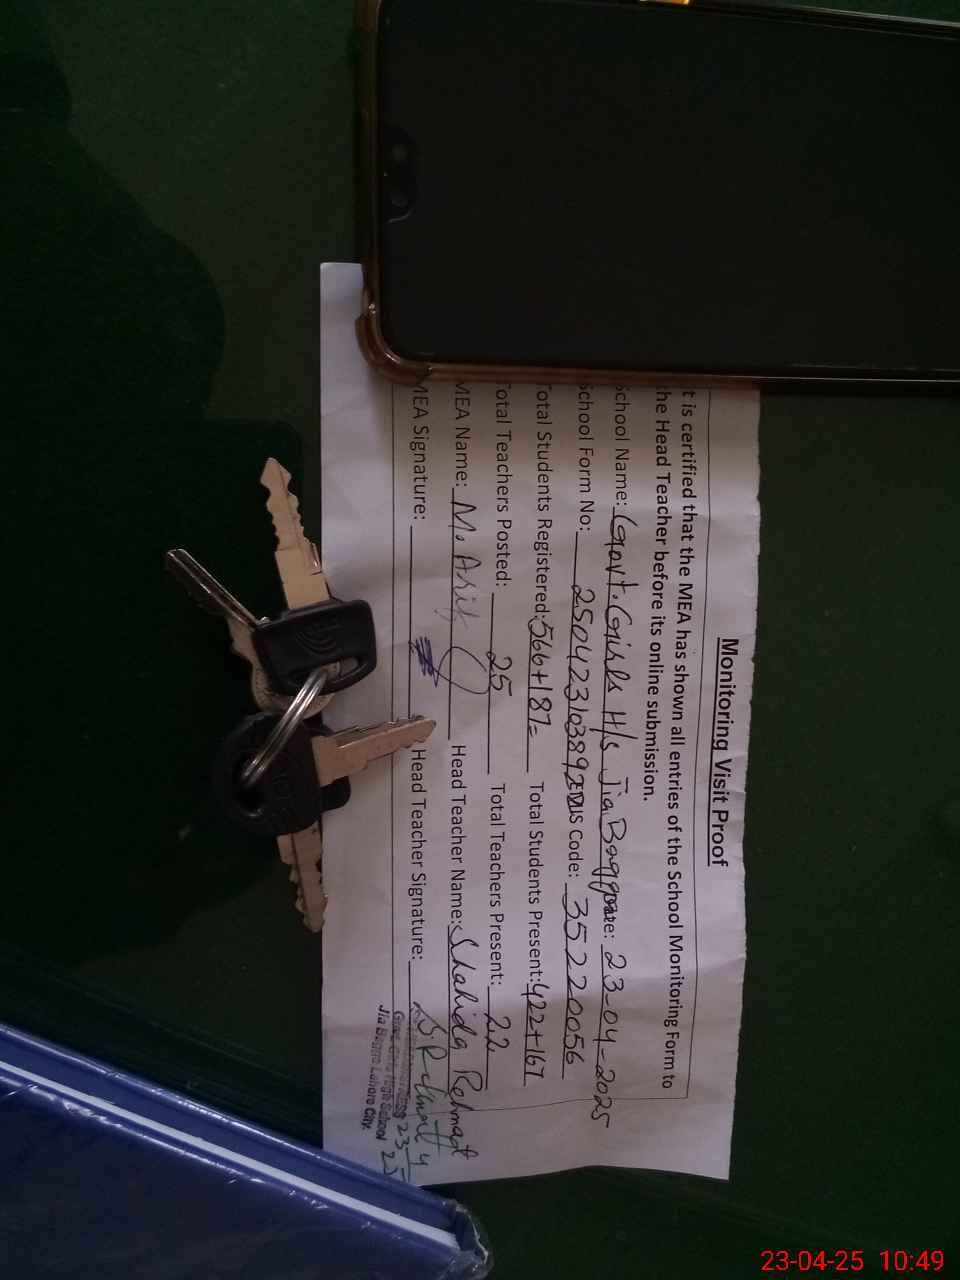 Monitoring Visit Proof
t is certified that the MEA has shown all entries of the School Monitoring Form to
he Head Teacher before its online submission.
School Name: Govt. Girls H/s Jia Bagga Date: 23-04-2025
School Form No: 25042310389 EMIS Code: 35220056
Total Students Registered: 566+187= Total Students Present: 422+167
Total Teachers Posted: 25 Total Teachers Present: 22
MEA Name: M. Arif Head Teacher Name: Shahida Rehmat
MEA Signature: Head Teacher Signature: S. Rehmat
Govt. Girls High School 23 4
Jia Bagga Lahore City. 25
23-04-25 10:49